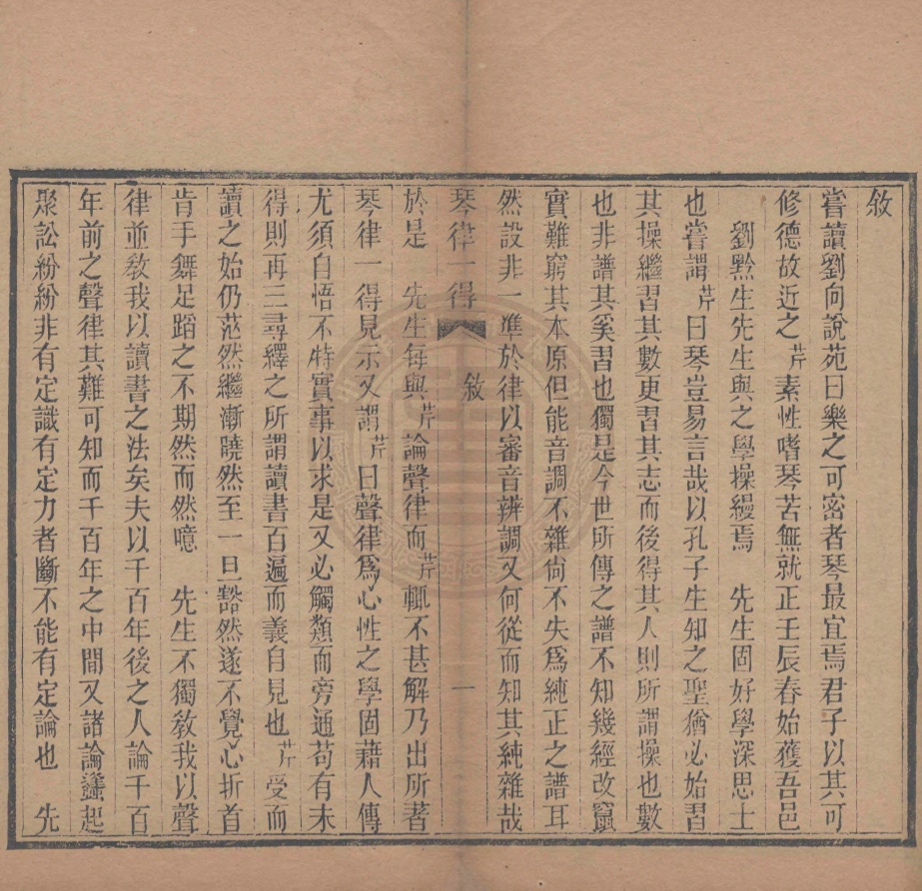 敘
嘗讀劉向說苑曰樂之可密者琴最宜焉君子以其可
修德故近之芹素性嗜琴苦無就正壬辰春始獲吾邑
劉黙生先生與之學操縵焉　先生固好學深思士
也嘗謂芹曰琴豈易言哉以孔子生知之聖猶必始習
其操繼習其數更習其志而後得其人則所謂操也數
也非譜其奚習也獨是今世所傳之譜不知幾經改竄
實難窮其本原但能音調不雜尙不失爲純正之譜耳
然設非一準於律以審音辨調又何從而知其純雜哉
琴律一得　敘　一
於是　先生每與芹論聲律而芹輒不甚解乃出所著
琴律一得見示又謂芹曰聲律爲心性之學固藉人傳
尤須自悟不特實事以求是又必觸類而旁通苟有未
得則再三尋繹之所謂讀書百遍而義自見也芹受而
讀之始仍茫然繼漸曉然至一旦豁然遂不覺心折首
肯手舞足蹈之不期然而然噫　先生不獨敎我以聲
律並敎我以讀書之法矣夫以千百年後之人論千百
年前之聲律其難可知而千百年之中間又諸論蠭起
聚訟紛紛非有定識有定力者斷不能有定論也　先